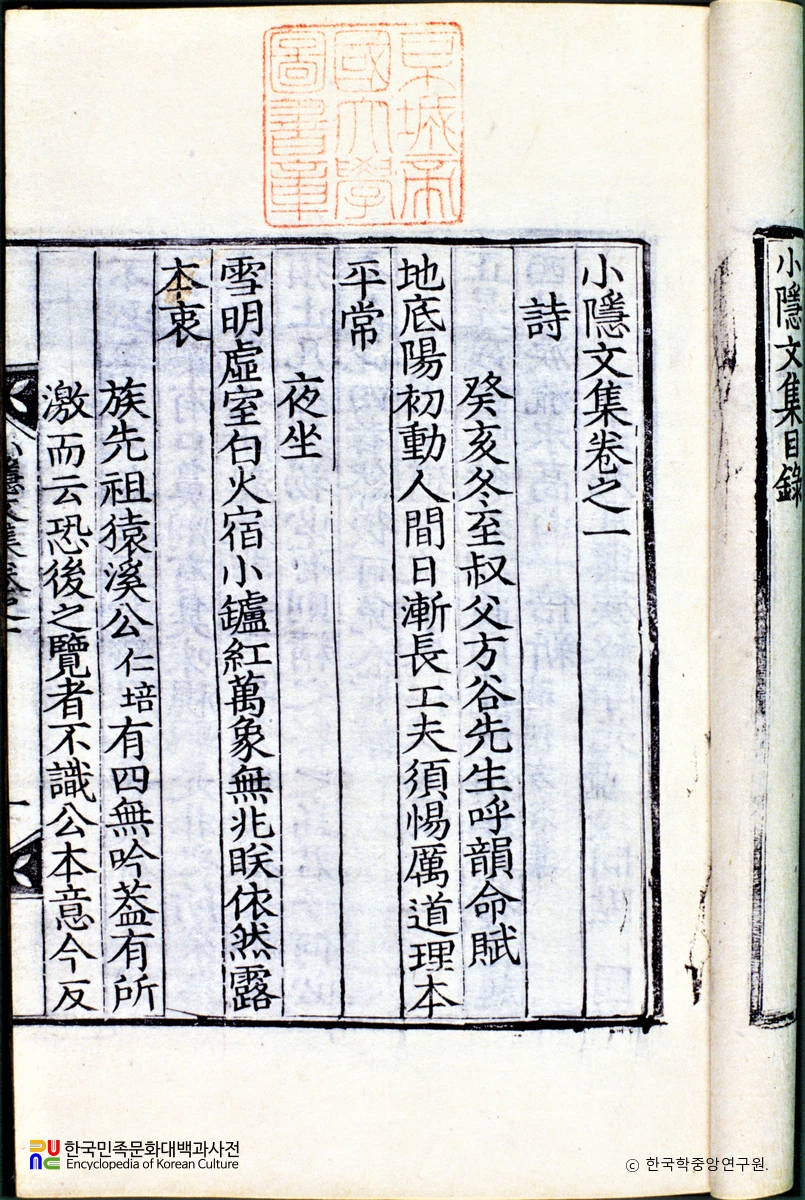 京城帝
國大學
圖書章
小隱文集目錄
小隱文集卷之一
詩
癸亥冬至叔父方谷先生呼韻命賦
地底陽初動人間日漸長工夫須惕厲道理本
平常
夜坐
雪明虛室白火宿小鑪紅萬象無兆眹依然露
本衷
族先祖猿溪公仁培有四無吟葢有所
激而云恐後之覽者不識公本意今反
小隱文集卷之一
한국민족문화대백과사전
Encyclopedia of Korean Culture
ⓒ 한국학중앙연구원.